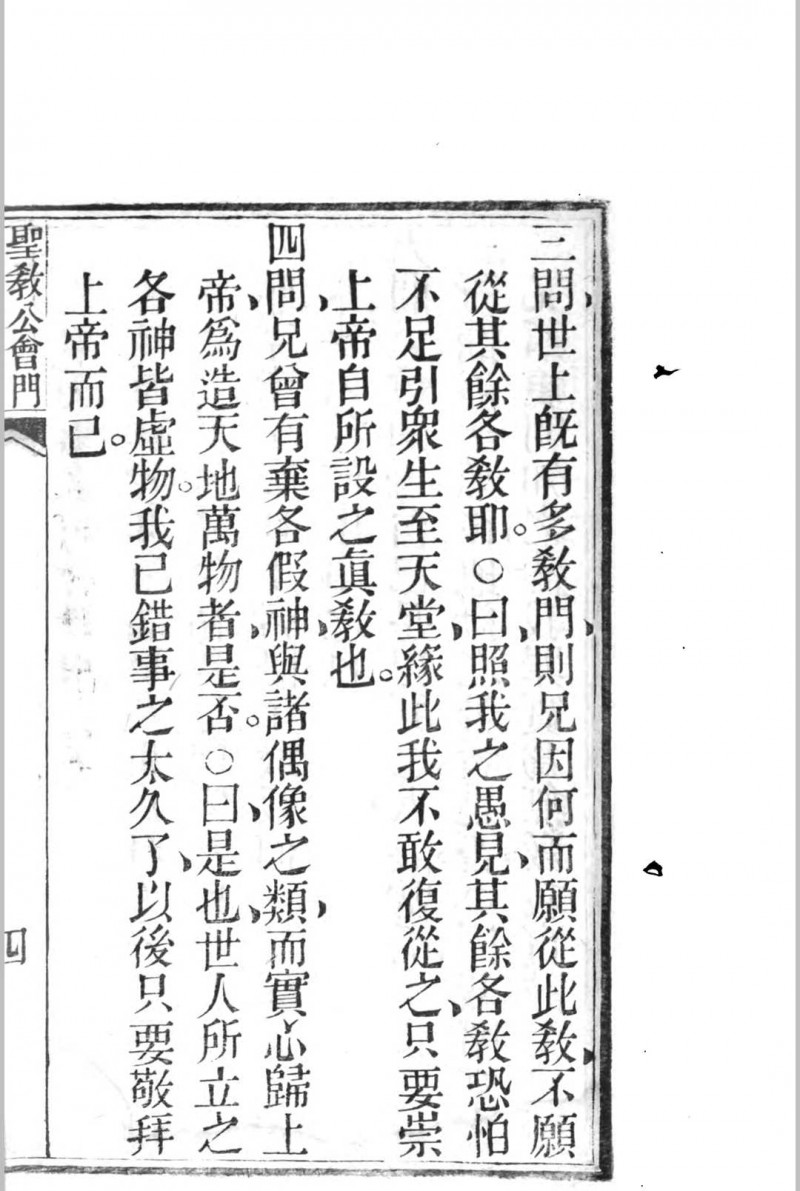 三問、世上旣有多敎門、則兄因何而願從此敎、不願
從其餘各敎耶。○曰、照我之愚見、其餘各敎恐怕
不足引衆生至天堂、緣此我不敢復從之、只要崇
上帝自所設之眞敎也。
四問、兄曾有棄各假神、與諸偶像之類、而實心歸上
帝、爲造天地萬物者、是否。○曰、是也、世人所立之
各神皆虛物。我已錯事之太久了、以後只要敬拜
上帝而已。
聖敎公會門
四